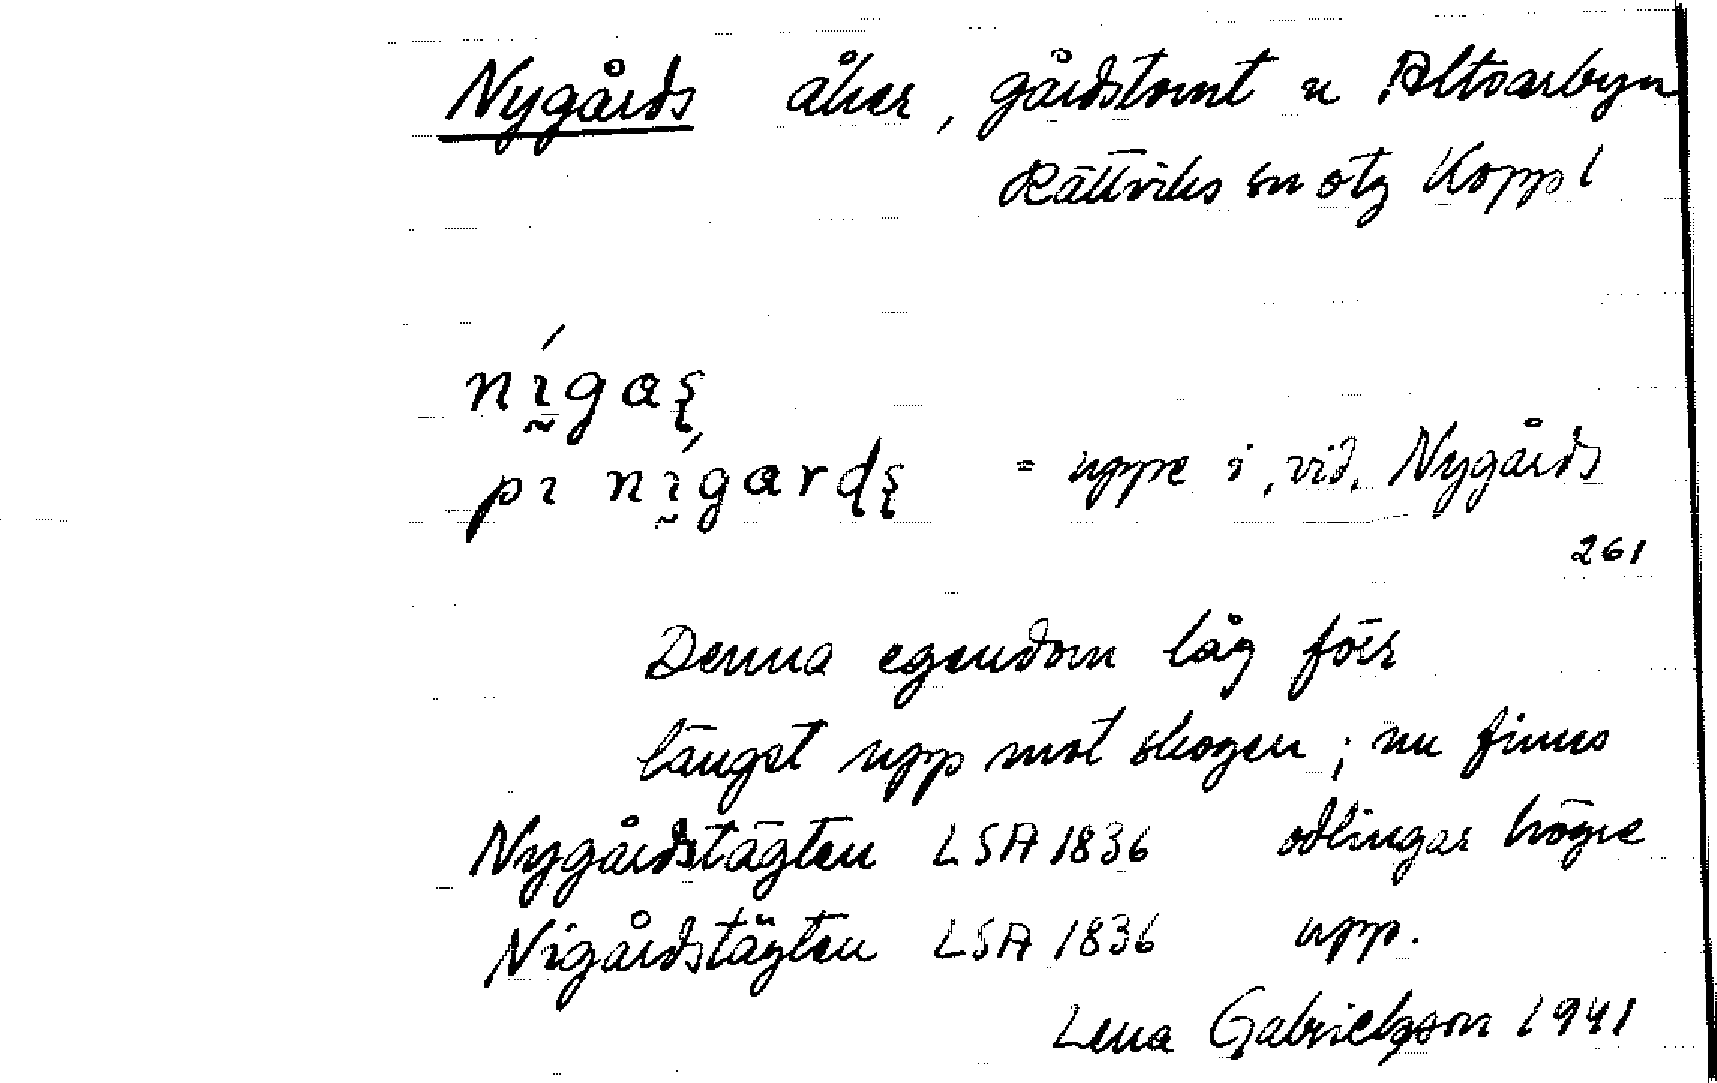 Nygårds åker, gårdstomt u Altsarbyn
Rättviks sn otg Koppl
nı̰́gaş
pı nı̰́gardş = uppe i, vid, Nygårds
261
Denna egendom låg förr
längst upp mot skogen; nu finns
Nygårdstägten LSA 1836 odlingar högre
Nigårdstägten LSA 1836 upp.
Lena Gabrielsson 1941